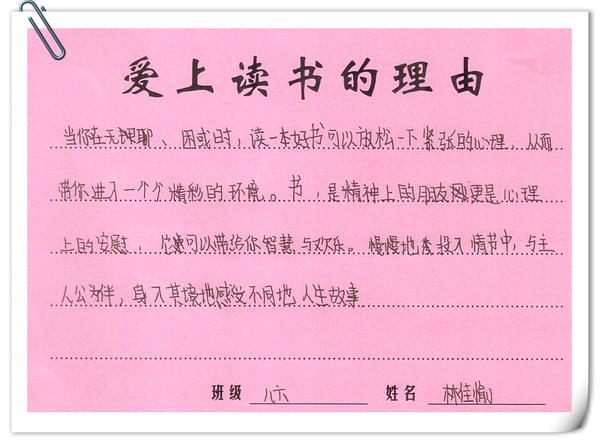 爱上读书的理由
当你在无聊、困或时，读一本好书可以放松一下紧张的心理，从而
带你进入一个个精秒的环境。书，是精神上的朋友更是心理
上的安慰，总可以带给你智慧与欢乐。慢慢地投入情节中，与主
人公为伴，身入其境地感受不同地人生故事
班级 八六 姓名 林佳愉